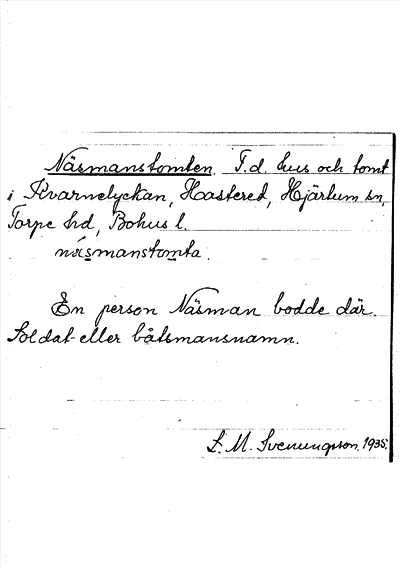 Näsmanstomten. F.d. hus och tomt
i Kvarnelyckan, Haastered, Hjärtum sn,
Torpe hd, Bohus l.
näsmanstomta.
En person Näsman bodde där.
Soldat- eller båtsmansnamn.
S. M. Svenungsson. 1935.